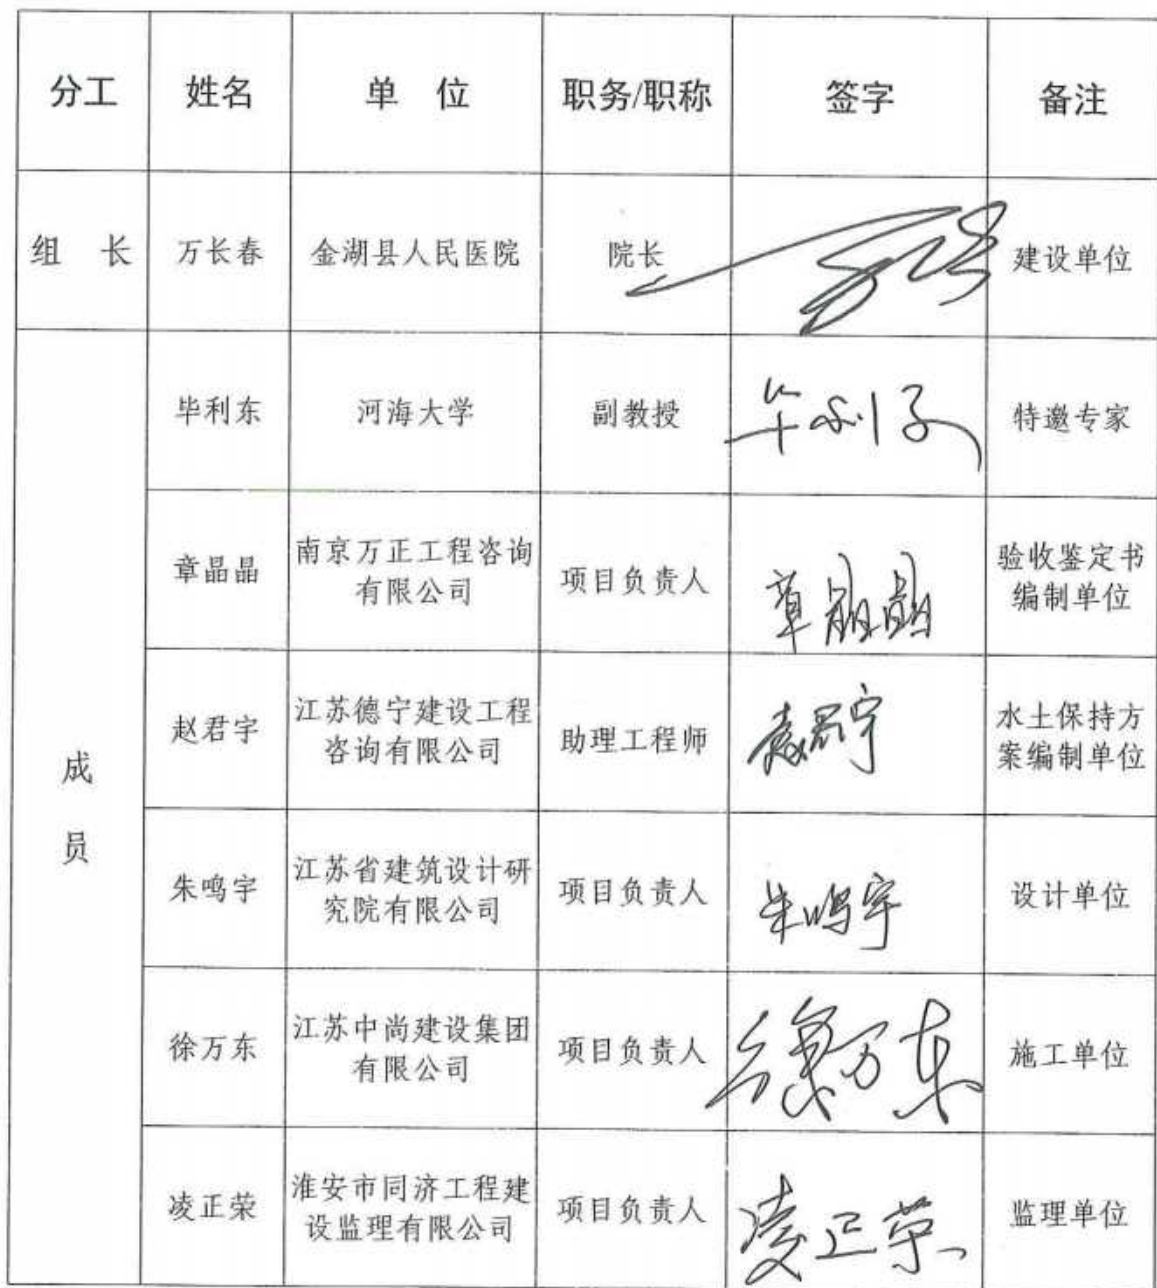 分工 姓名 单 位 职务/职称 签字 备注
组 长 万长春 金湖县人民医院 院长 建设单位
成
员
毕利东 河海大学 副教授 毕利东 特邀专家
章晶晶 南京万正工程咨询
有限公司 项目负责人 章晶晶 验收鉴定书
编制单位
赵君宇 江苏德宁建设工程
咨询有限公司 助理工程师 赵君宇 水土保持方
案编制单位
朱鸣宇 江苏省建筑设计研
究院有限公司 项目负责人 朱鸣宇 设计单位
徐万东 江苏中尚建设集团
有限公司 项目负责人 徐万东 施工单位
凌正荣 淮安市同济工程建
设监理有限公司 项目负责人 凌正荣 监理单位